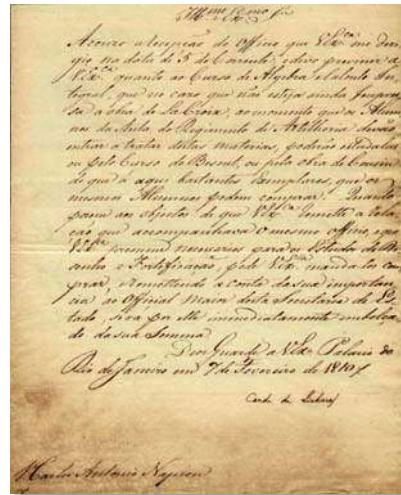 Illmo e Exmo Snr
Accuzo a recepção do Officio que V.Exca me diri-
gio na data de 5 do Corrente, e devo prevenir a
V.Exca quanto ao Curso de Algebra e Calculo In-
tegral, que no caso que não esteja ainda Impres-
sa a obra de La Croix, ao momento que os Alum-
nos da Aula do Regimento de Artilharia devão
entrar a tratar destas materias, poderão estudalas
ou pelo Curso de Bezout, ou pela obra de Cousin
de que à aqui bastantes Exemplares, que os
mesmos Alumnos podem comprar. Quanto
porem aos objectos de que V.Exca remette a rela-
ção que acompanhava o mesmo officio, e que
V.Exca necessarios para o Estudo de De-
senho e Fortificação, pode V.Exca mandalos com-
prar, remettendo a conta da sua importan-
cia ao Official Maior desta Secretaria de Es-
tado, será por elle immediatamente embolça-
do da sua Somma.
Deos Guarde a V.Exca Palacio do
Rio de Janeiro em 7 de Fevereiro de 1810
Conde de Linhares
Carlos Antonio Napion